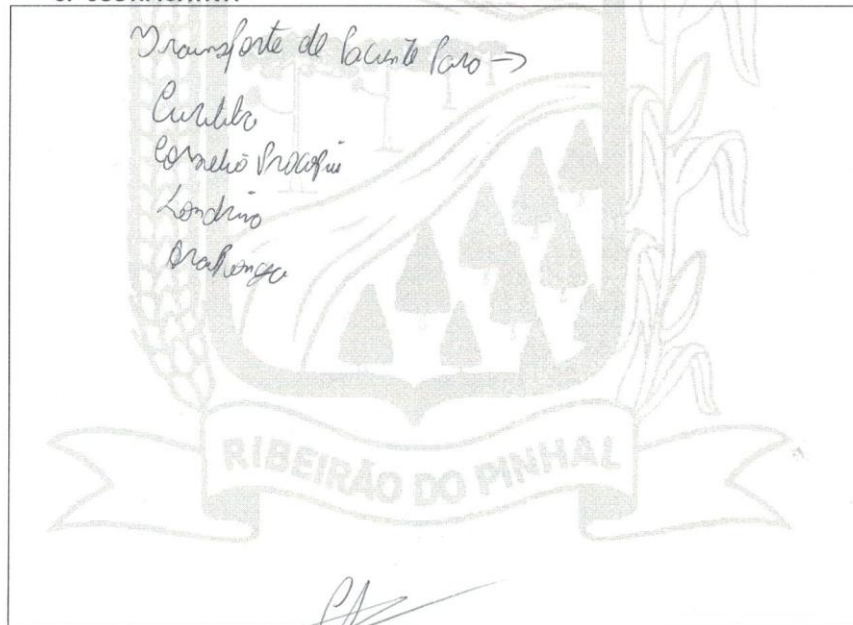 Transporte de Paciente Para →
Curitiba
Cornelio Procopio
Londrina
Arapongas
RIBEIRÃO DO PINHAL